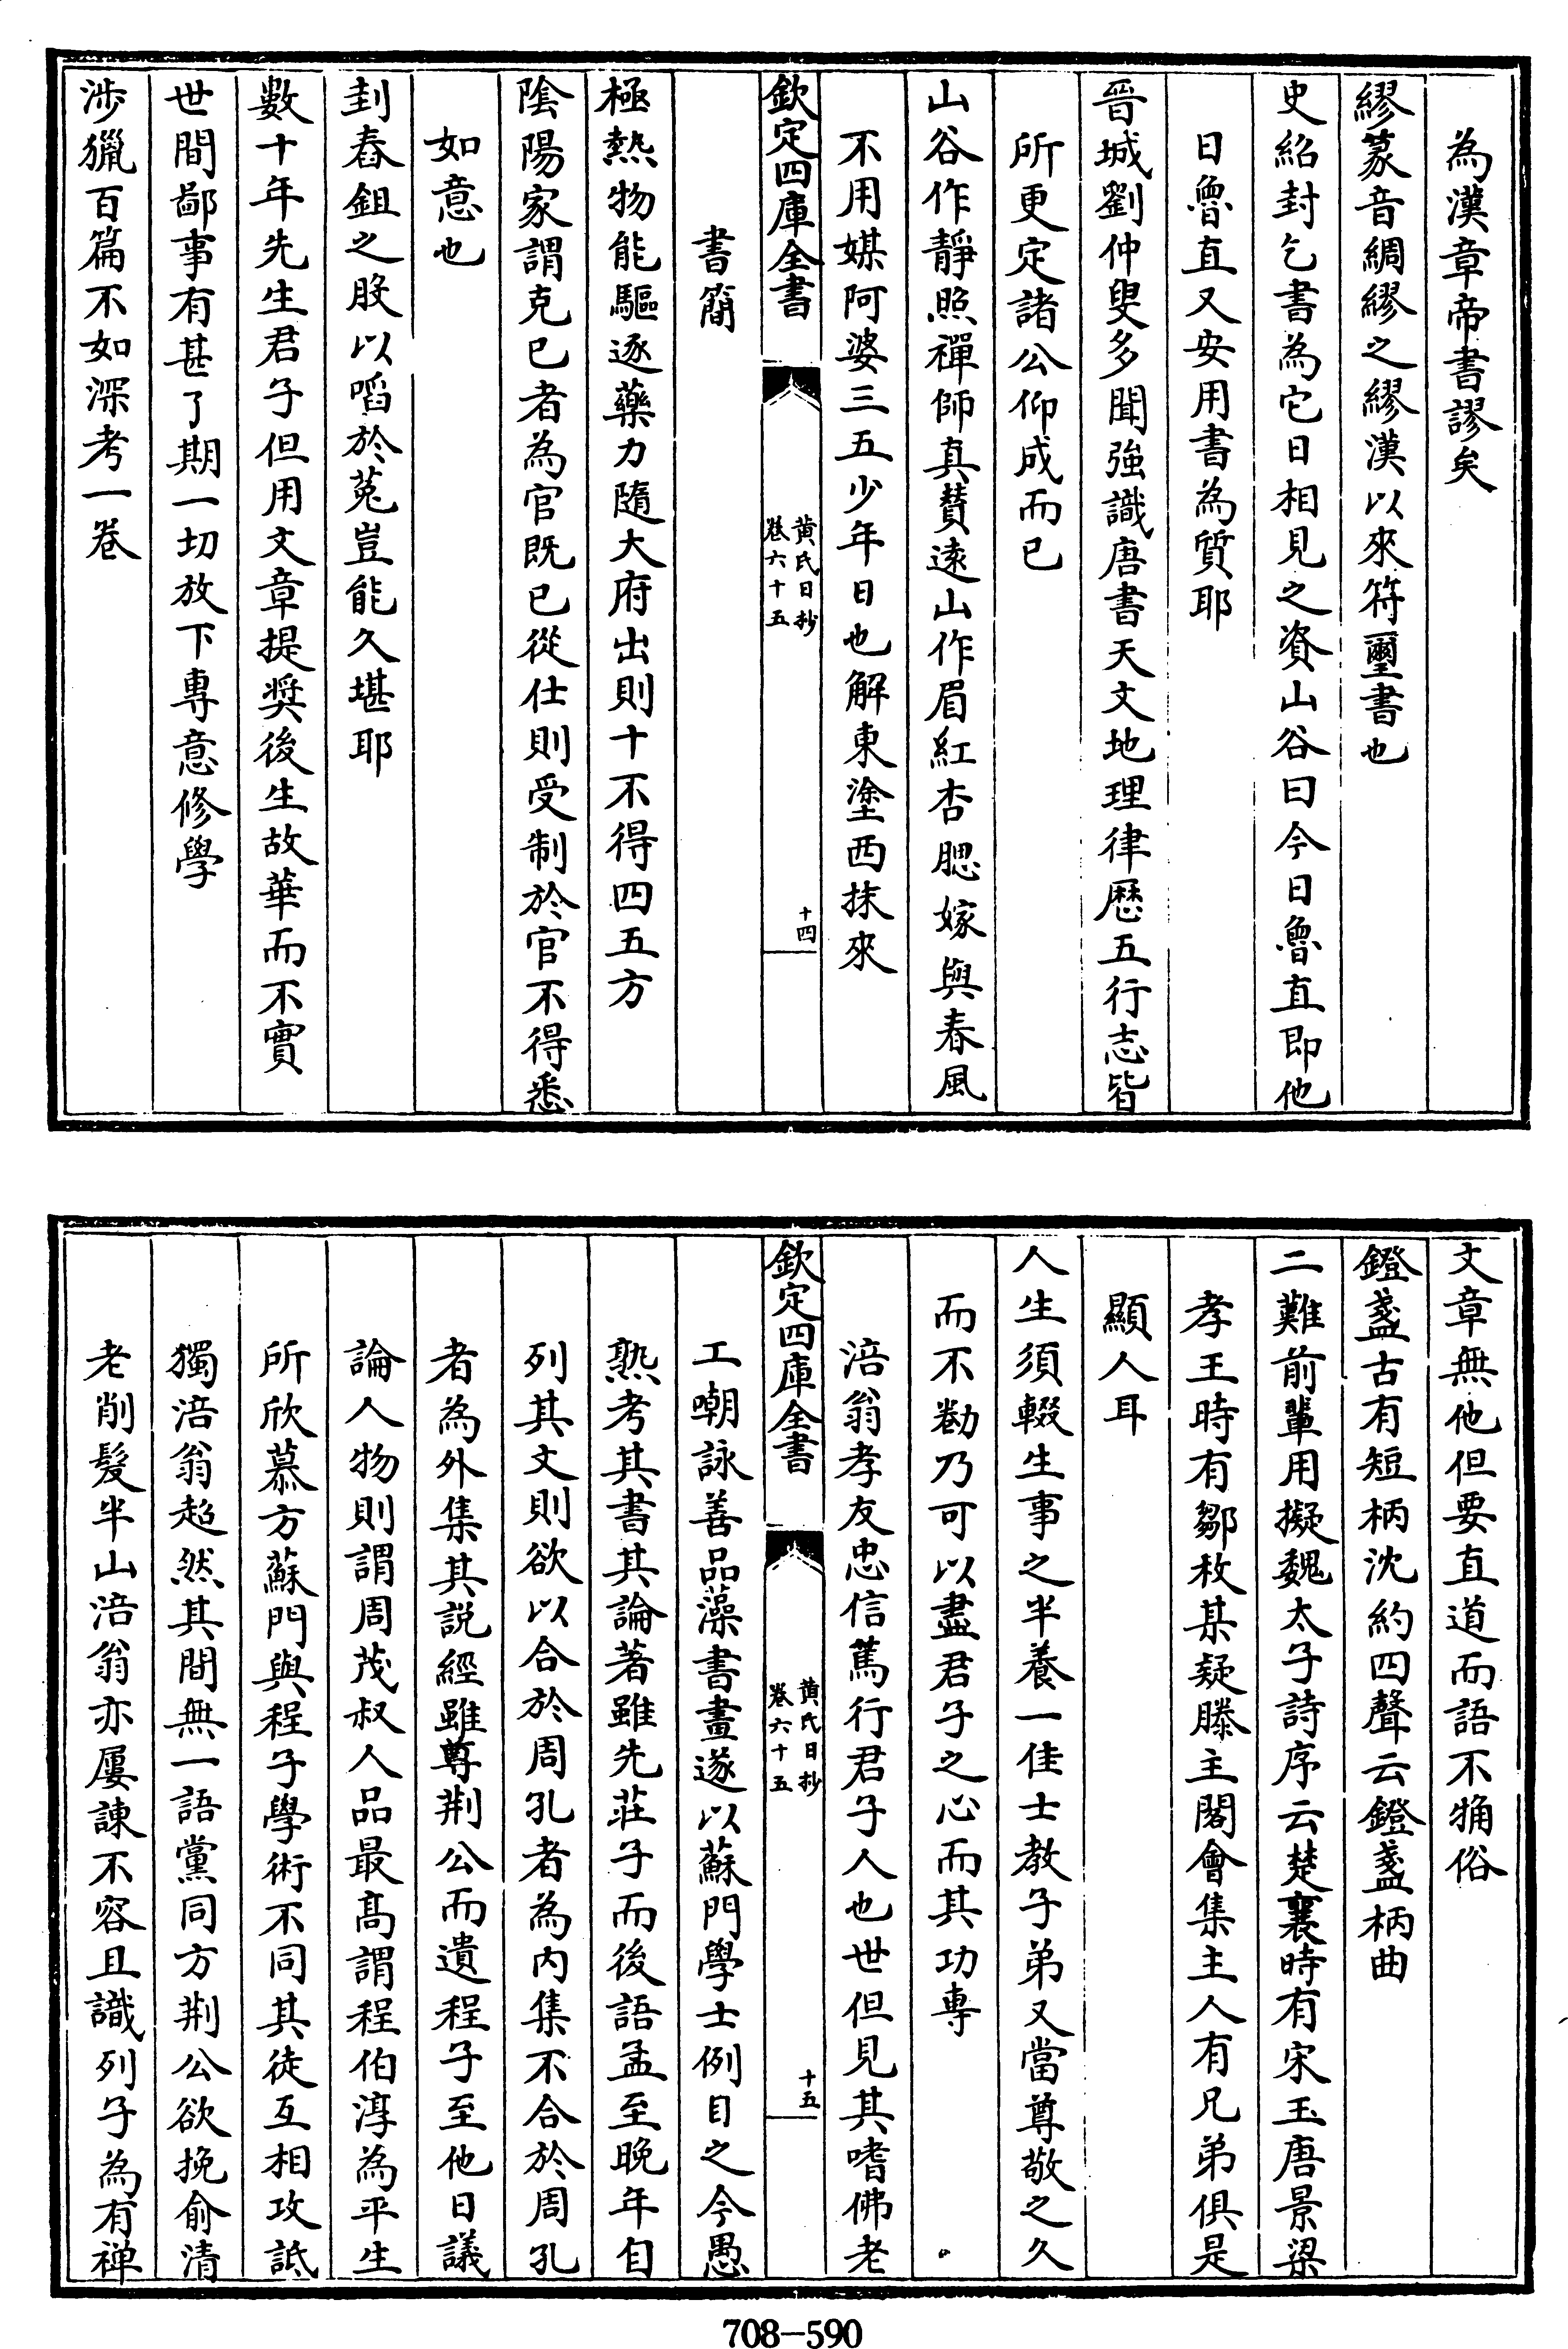 為漢章帝書謬矣
繆篆音綢繆之繆漢以來符璽書也
史紹封乞書為它日相見之資山谷曰今日魯直即他
日魯直又安用書為質耶
晉城劉仲叟多聞強識唐書天文地理律歷五行志皆
所更定諸公仰成而已
山谷作靜照禪師真賛遠山作眉紅杏腮嫁與春風
不用媒阿婆三五少年日也解東塗西抹來
欽定四庫全書
黄氏日抄
卷六十五
十四
書簡
極熱物能驅逐藥力隨大府出則十不得四五方
陰陽家謂克已者為官既已從仕則受制於官不得悉
如意也
刲舂鉏之股以啗於菟豈能久堪耶
數十年先生君子但用文章提奬後生故華而不實
世間鄙事有甚了期一切放下專意修學
涉獵百篇不如深考一卷
文章無他但要直道而語不觕俗
鐙盞古有短柄沈約四聲云鐙盞柄曲
二難前輩用擬魏太子詩序云楚襄時有宋玉唐景梁
孝王時有鄒枚某疑滕主閣會集主人有兄弟俱是
顯人耳
人生須輟生事之半養一佳士教子弟又當尊敬之久
而不勌乃可以盡君子之心而其功專
涪翁孝友忠信篤行君子人也世但見其嗜佛老
欽定四庫全書
黄氏日抄
卷六十五
十五
工嘲詠善品藻書畫遂以蘇門學士例目之今愚
熟考其書其論著雖先莊子而後語孟至晚年自
列其文則欲以合於周孔者為内集不合於周孔
者為外集其説經雖尊荆公而遺程子至他日議
論人物則謂周茂叔人品最髙謂程伯淳為平生
所欣慕方蘇門與程子學術不同其徒互相攻詆
獨涪翁超然其間無一語黨同方荆公欲挽俞清
老削髪半山涪翁亦屢諫不容且識列子為有禅
708-590